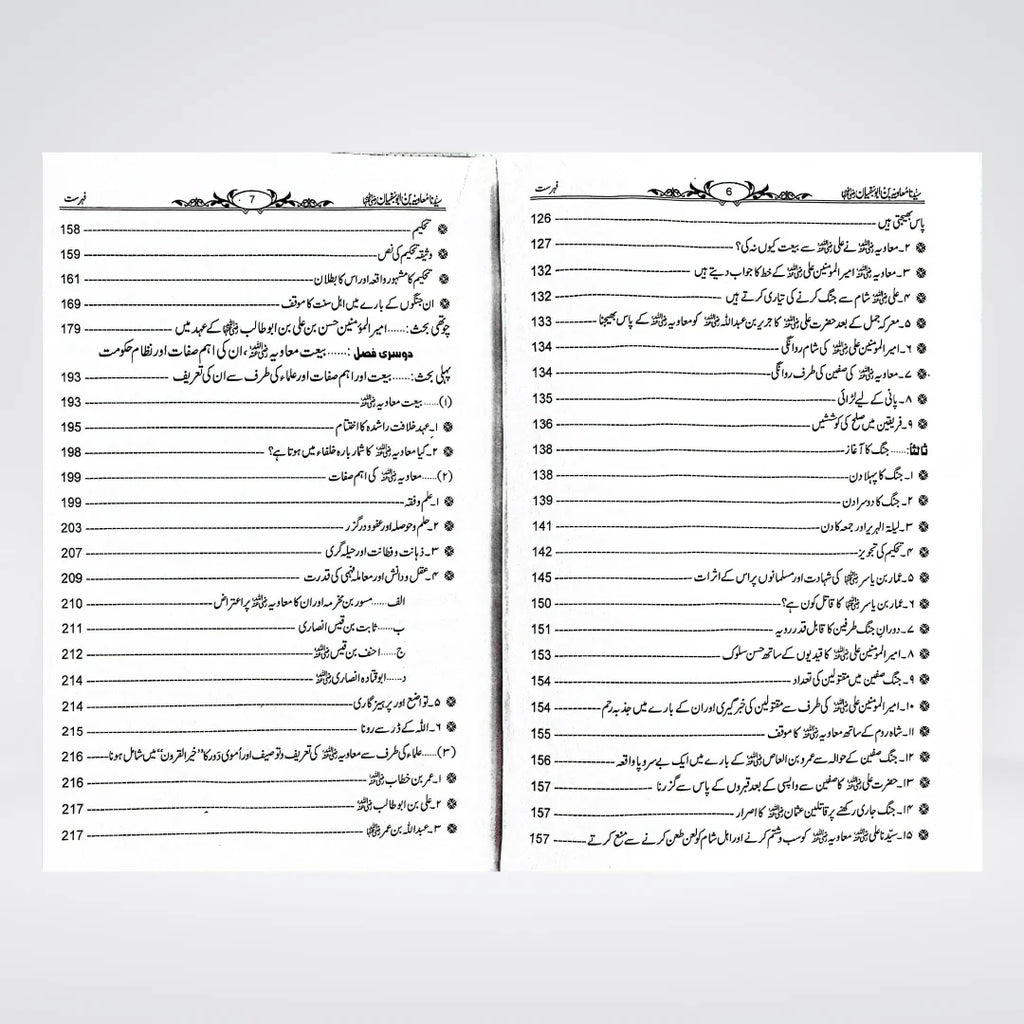 سیدنا معاویہ بن ابوسفیان رضی اللہ عنہما 6 فہرست
پاس بھیجتی ہیں 126
۲۔ معاویہ رضی اللہ عنہ نے علی رضی اللہ عنہ سے بیعت کیوں نہ کی؟ 127
۳۔ معاویہ رضی اللہ عنہ امیر المومنین علی رضی اللہ عنہ کے خط کا جواب دیتے ہیں 132
۴۔ علی رضی اللہ عنہ شام سے جنگ کرنے کی تیاری کرتے ہیں 132
۵۔ معرکہ جمل کے بعد حضرت علی رضی اللہ عنہ کا جریر بن عبداللہ رضی اللہ عنہ کو معاویہ رضی اللہ عنہ کے پاس بھیجنا 133
۶۔ امیر المومنین علی رضی اللہ عنہ کی شام روانگی 134
۷۔ معاویہ رضی اللہ عنہ کی صفین کی طرف روانگی 134
۸۔ پانی کے لیے لڑائی 135
۹۔ فریقین میں صلح کی کوششیں 136
ثالثاً:...... جنگ کا آغاز 138
۱۔ جنگ کا پہلا دن 138
۲۔ جنگ کا دوسرا دن 139
۳۔ لیلۃ الہریر اور جمعہ کا دن 141
۴۔ تحکیم کی تجویز 142
۵۔ عمار بن یاسر رضی اللہ عنہما کی شہادت اور مسلمانوں پر اس کے اثرات 145
۶۔ عمار بن یاسر رضی اللہ عنہما کا قاتل کون ہے؟ 150
۷۔ دورانِ جنگ طرفین کا قابل قدر رویہ 151
۸۔ امیر المومنین علی رضی اللہ عنہ کا قیدیوں کے ساتھ حسن سلوک 153
۹۔ جنگ صفین میں مقتولین کی تعداد 154
۱۰۔ امیر المومنین علی رضی اللہ عنہ کی طرف سے مقتولین کی خبر گیری اور ان کے بارے میں جذبہ رحم 154
۱۱۔ شاہ روم کے ساتھ معاویہ رضی اللہ عنہ کا موقف 155
۱۲۔ جنگ صفین کے حوالہ سے عمرو بن العاص رضی اللہ عنہ کے بارے میں ایک بے سروپا واقعہ 156
۱۳۔ حضرت علی رضی اللہ عنہ کا صفین سے واپسی کے بعد قبروں کے پاس سے گزرنا 157
۱۴۔ جنگ جاری رکھنے پر قاتلین عثمان رضی اللہ عنہ کا اصرار 157
۱۵۔ سیّدنا علی رضی اللہ عنہ معاویہ رضی اللہ عنہ کو سب و شتم کرنے اور اہل شام کو لعن طعن کرنے سے منع کرتے 157
سیدنا معاویہ بن ابوسفیان رضی اللہ عنہما 7 فہرست
تحکیم 158
وثیقہ تحکیم کی نص 159
تحکیم کا مشہور واقعہ اور اس کا بطلان 161
ان جنگوں کے بارے میں اہل سنت کا موقف 169
چوتھی بحث:...... امیر المؤمنین حسن بن علی بن ابو طالب رضی اللہ عنہما کے عہد میں 179
دوسری فصل:...... بیعت معاویہ رضی اللہ عنہ، ان کی اہم صفات اور نظام حکومت
پہلی بحث:...... بیعت اور اہم صفات اور علماء کی طرف سے ان کی تعریف 193
(۱)...... بیعت معاویہ رضی اللہ عنہ 193
۱۔ عہد خلافت راشدہ کا اختتام 195
۲۔ کیا معاویہ رضی اللہ عنہ کا شمار بارہ خلفاء میں ہوتا ہے؟ 198
(۲)...... معاویہ رضی اللہ عنہ کی اہم صفات 199
۱۔ علم و فقہ 199
۲۔ حلم و حوصلہ اور عفو و درگزر 203
۳۔ ذہانت و فطانت اور حیلہ گری 207
۴۔ عقل و دانش اور معاملہ فہمی کی قدرت 209
الف...... مسور بن مخرمہ اور ان کا معاویہ رضی اللہ عنہ پر اعتراض 210
ب...... ثابت بن قیس انصاری 211
ج...... احنف بن قیس رضی اللہ عنہ 212
د...... ابوقتادہ انصاری رضی اللہ عنہ 214
۵۔ تواضع اور پرہیز گاری 214
۶۔ اللہ کے ڈر سے رونا 215
(۳)...... علماء کی طرف سے معاویہ رضی اللہ عنہ کی تعریف و توصیف اور اُموی دَور کا ’’خیر القرون‘‘ میں شامل ہونا 216
۱۔ عمر بن خطاب رضی اللہ عنہ 216
۲۔ علی بن ابو طالب رضی اللہ عنہ 217
۳۔ عبداللہ بن عمر رضی اللہ عنہما 217